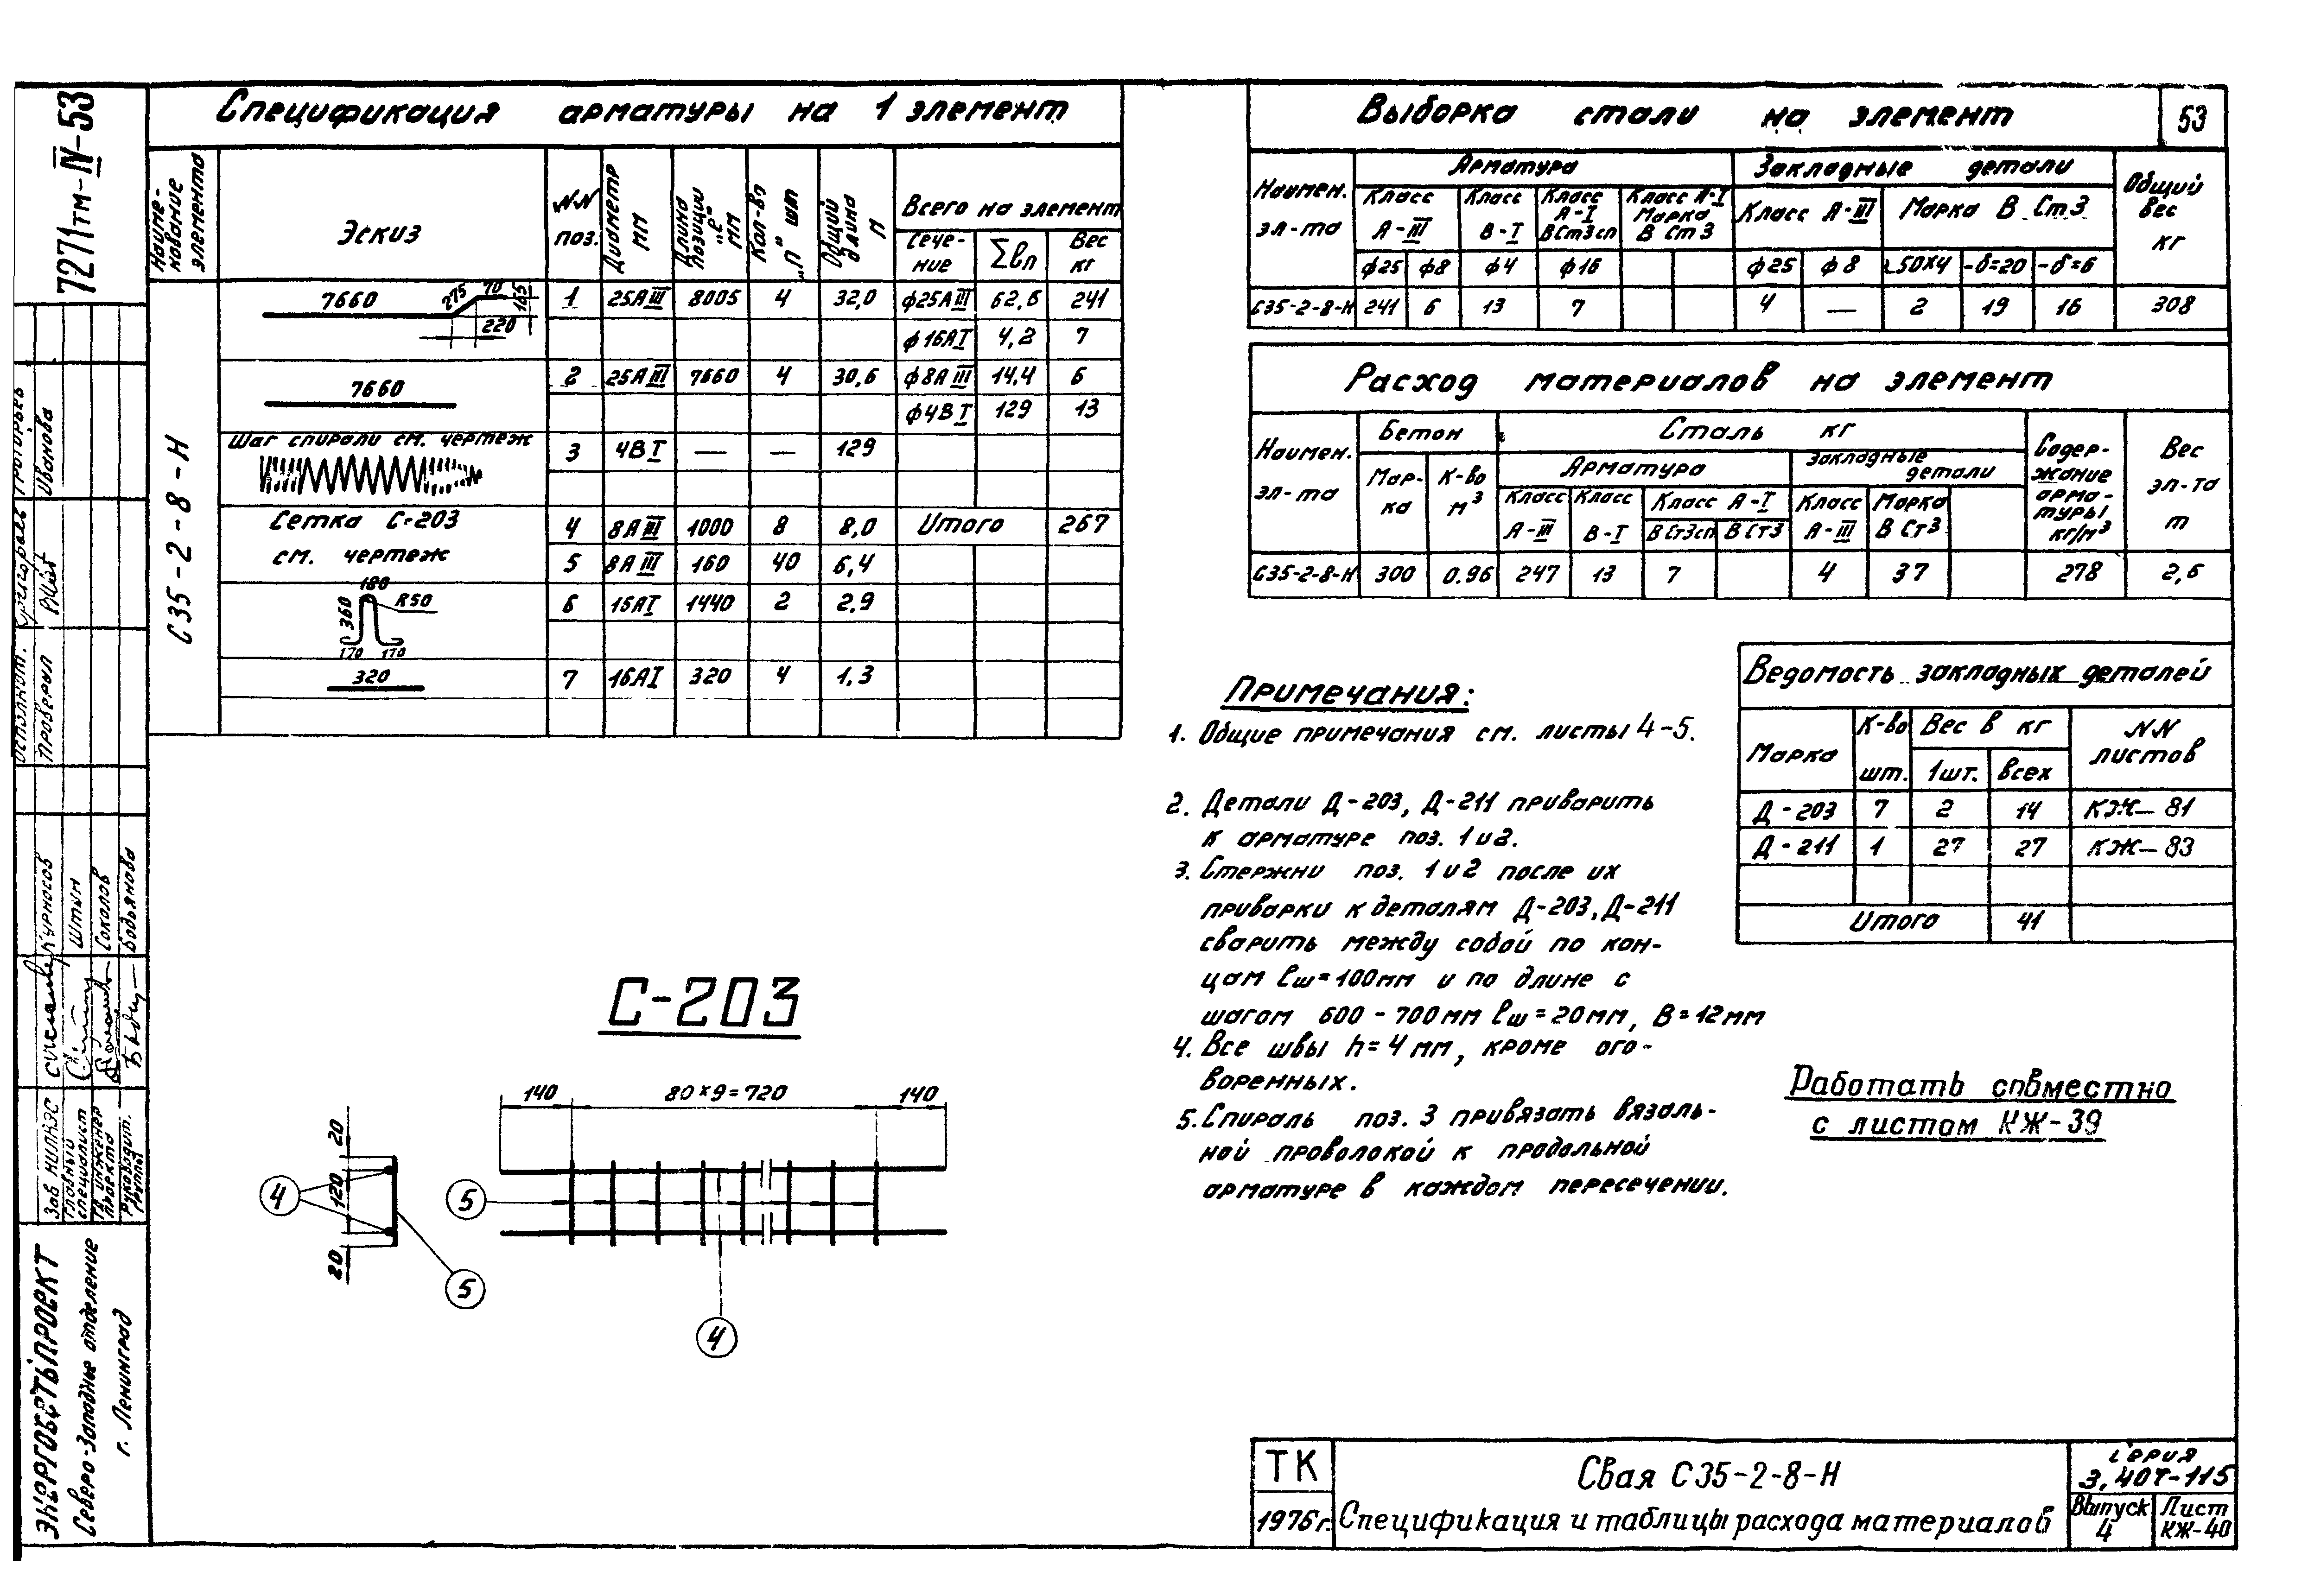 7271тм-IV-53
Спецификация арматуры на 1 элемент
Наиме-
нование
элемента
Эскиз
NN
поз.
Диаметр
мм
Длина
позиции
"ℓ"
мм
Кол-во
"П" шт
Общий
длина
м
Всего на элемент
Сече-
ние
Σℓп
Вес
кг
С35-2-8-Н
7660 275 70 165 220
1 25АIII 8005 4 32,0 ф25АIII 62,6 241
ф16АI 4,2 7
7660
2 25АIII 7660 4 30,6 ф8АIII 14,4 6
ф4ВI 129 13
Шаг спирали см. чертеж
3 4ВI — — 129
Сетка С-203
см. чертеж
4 8АIII 1000 8 8,0 Итого 267
5 8АIII 160 40 6,4
180 R50 360 170 170
6 16АI 1440 2 2,9
320
7 16АI 320 4 1,3
Выборка стали на элемент
53
Наимен.
эл-та
Арматура
Закладные детали
Общий
вес
кг
Класс
А-III
Класс
В-I
Класс
А-I
ВСт3сп
Класс А-I
Марка
В Ст3
Класс А-III
Марка В Ст3
ф25 ф8 ф4 ф16 ф25 ф8 L50х4 -δ=20 -δ=6
С35-2-8-Н 241 6 13 7 4 — 2 19 16 308
Расход материалов на элемент
Наимен.
эл-та
Бетон
Сталь кг
Содер-
жание
арма-
туры
кг/м³
Вес
эл-та
т
Мар-
ка
К-во
м³
Арматура
Закладные
детали
Класс
А-III
Класс
В-I
Класс А-I
В Ст3сп
В Ст3
Класс
А-III
Марка
В Ст3
С35-2-8-Н 300 0.96 247 13 7 4 37 278 2,6
Ведомость закладных деталей
Марка
К-во
шт.
Вес в кг
1шт.
всех
NN
листов
Д-203 7 2 14 КЖ-81
Д-211 1 27 27 КЖ-83
Итого 41
Примечания:
1. Общие примечания см. листы 4-5.
2. Детали Д-203, Д-211 приварить
к арматуре поз. 1 и 2.
3. Стержни поз. 1 и 2 после их
приварки к деталям Д-203, Д-211
сварить между собой по кон-
цам ℓш=100мм и по длине с
шагом 600-700мм ℓш=20мм, В=12мм
4. Все швы h=4мм, кроме ого-
воренных.
5. Спираль поз. 3 привязать вязаль-
ной проволокой к продольной
арматуре в каждом пересечении.
Работать совместно
с листом КЖ-39
С-203
140 80х9=720 140
20
120
20
4
5
5
4
Иванова
Исполнит.
Проверил
Курносов
Штин
Соколов
Зав НИЛКЭС
Главный
специалист
Гл. инженер
проекта
Руководит.
группы
ЭНЕРГОСЕТЬПРОЕКТ
Северо-Западное отделение
г. Ленинград
ТК
1976г.
Свая С35-2-8-Н
Спецификация и таблицы расхода материалов
Серия
3.407-115
Выпуск
4
Лист
КЖ-40